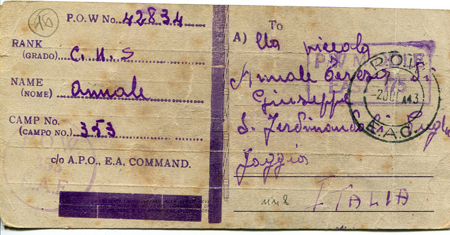 10
P.O.W No. 42834
RANK
(GRADO) C.N.S
NAME
(NOME) Annale
CAMP No.
(CAMPO No.) 353
c/o A.P.O., E.A. COMMAND.
To
A) Alla piccola
Annale Teresa Di
Giuseppe
S. Ferdinando Puglia
Foggia
ITALIA
P.O.W. 
E.A.C.